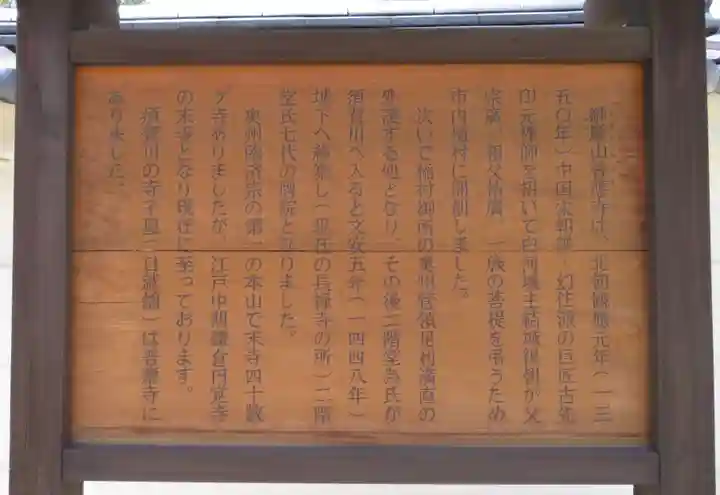 御影山普應寺は、北朝観應元年（一三
五〇年）中国臨済禅幻住派の巨匠古先
印元禅師を招いて白河城主結城親朝が父
宗廣、祖父祐廣、一族の菩提を弔うため
市内稲村に開創しました。
次いで稲村御所の奥州管領足利満直の
外護する処となり、その後二階堂為氏が
須賀川へ入ると文安五年（一四四八年）
城下へ移築し（現在の長禄寺の所）二階
堂氏七代の開院となりました。
奥州臨済宗の第一の本山で末寺四十数
ヶ寺ありましたが、江戸中期鎌倉円覚寺
の末寺となり現在に至っております。
須賀川の寺子屋（自誠館）は普應寺に
ありました。